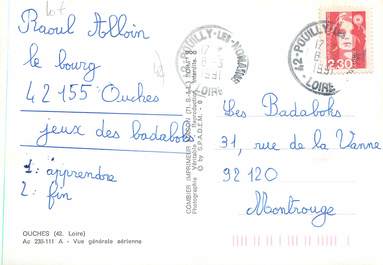 lot
Raoul Alloin
le bourg
42 155 Ouches
jeux des badaboks
1: apprendre
2: fin
OUCHES (42. Loire)
Ac 230-111 A - Vue générale aérienne
COMBIER IMPRIMEUR MACON
Photographie Véritable
© by S.P.A.D.E.M.
42-POUILLY-LES-NONAINS
17
1991
LOIRE
2,30
Les Badaboks
31, rue de la Vanne
92120
Montrouge